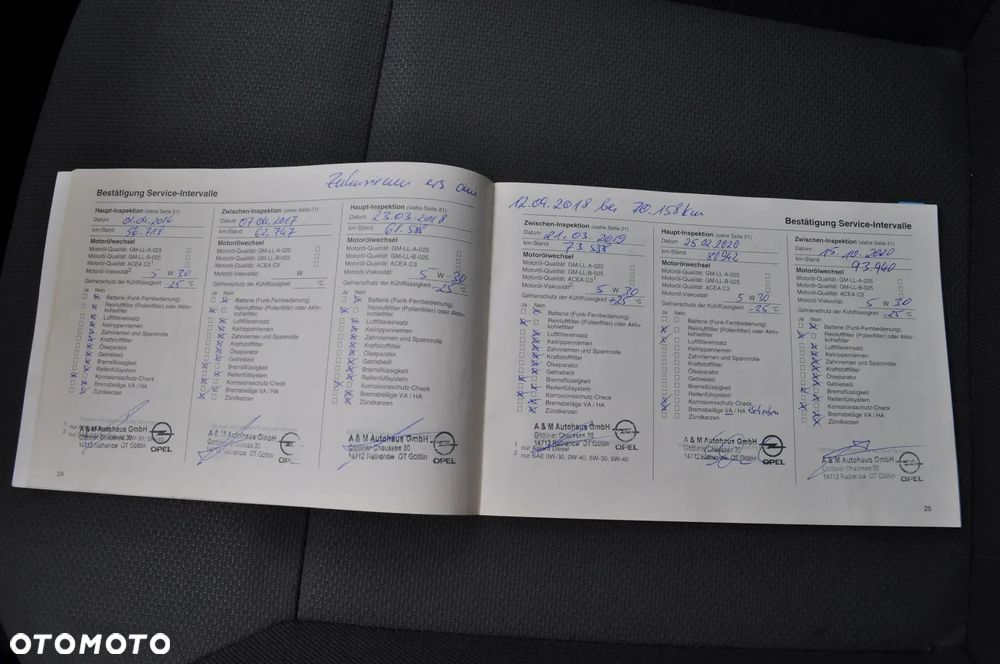 Bestätigung Service-Intervalle
Haupt-Inspektion (siehe Seite 21)
Datum 01.04.2016
km-Stand 56.718
Motorölwechsel
Motoröl-Qualität: GM-LL-A-025
Motoröl-Qualität: GM-LL-B-025
Motoröl-Qualität: ACEA C3
Motoröl-Viskosität 5 W 30
Gefrierschutz der Kühlflüssigkeit -25 °C
Ja Nein
Batterie (Funk-Fernbedienung)
Reinluftfilter (Pollenfilter) oder Aktiv-
kohlefilter
Luftfiltereinsatz
Keilrippenriemen
Zahnriemen und Spannrolle
Kraftstofffilter
Ölseparator
Getriebeöl
Bremsflüssigkeit
Reifenfüllsystem
Korrosionsschutz-Check
Bremsbeläge VA / HA
Zündkerzen
Göttliner Chaussee 30
14712 Rathenow OT Göttlin
OPEL
24
Zwischen-Inspektion (siehe Seite 21)
Datum 07.04.2017
km-Stand
Motorölwechsel
Motoröl-Qualität: GM-LL-A-025
Motoröl-Qualität: GM-LL-B-025
Motoröl-Qualität: ACEA C3
Motoröl-Viskosität: W
Gefrierschutz der Kühlflüssigkeit °C
Ja Nein
Batterie (Funk-Fernbedienung)
Reinluftfilter (Pollenfilter) oder Aktiv-
kohlefilter
Luftfiltereinsatz
Keilrippenriemen
Zahnriemen und Spannrolle
Kraftstofffilter
Ölseparator
Getriebeöl
Bremsflüssigkeit
Reifenfüllsystem
Korrosionsschutz-Check
Bremsbeläge VA / HA
Zündkerzen
A & M Autohaus GmbH
Göttliner Chaussee 30
14712 Rathenow OT Göttlin
OPEL
Haupt-Inspektion (siehe Seite 21)
Datum 23.03.2018
km-Stand
Motorölwechsel
Motoröl-Qualität: GM-LL-A-025
Motoröl-Qualität: GM-LL-B-025
Motoröl-Qualität: ACEA C3
Motoröl-Viskosität 5 W 30
Gefrierschutz der Kühlflüssigkeit -25 °C
Ja Nein
Batterie (Funk-Fernbedienung)
Reinluftfilter (Pollenfilter) oder Aktiv-
kohlefilter
Luftfiltereinsatz
Keilrippenriemen
Zahnriemen und Spannrolle
Kraftstofffilter
Ölseparator
Getriebeöl
Bremsflüssigkeit
Reifenfüllsystem
Korrosionsschutz-Check
Bremsbeläge VA / HA
Zündkerzen
A & M Autohaus GmbH
Göttliner Chaussee 30
14712 Rathenow OT Göttlin
OPEL
12.09.2018 bei 70.158km
Bestätigung Service-Intervalle
Zwischen-Inspektion (siehe Seite 21)
Datum 21.03.2019
km-Stand 73.538
Motorölwechsel
Motoröl-Qualität: GM-LL-A-025
Motoröl-Qualität: GM-LL-B-025
Motoröl-Qualität: ACEA C3
Motoröl-Viskosität 5 W 30
Gefrierschutz der Kühlflüssigkeit -25 °C
Ja Nein
Batterie (Funk-Fernbedienung)
Reinluftfilter (Pollenfilter) oder Aktiv-
kohlefilter
Luftfiltereinsatz
Keilrippenriemen
Zahnriemen und Spannrolle
Kraftstofffilter
Ölseparator
Getriebeöl
Bremsflüssigkeit
Reifenfüllsystem
Korrosionsschutz-Check
Bremsbeläge VA / HA
Zündkerzen
A & M Autohaus GmbH
Göttliner Chaussee 30
14712 Rathenow OT Göttlin
OPEL
1 nur Diesel
2 nur SAE 0W-30, 0W-40, 5W-30, 5W-40
Haupt-Inspektion (siehe Seite 21)
Datum 25.02.2020
km-Stand
Motorölwechsel
Motoröl-Qualität: GM-LL-A-025
Motoröl-Qualität: GM-LL-B-025
Motoröl-Qualität: ACEA C3
Motoröl-Viskosität 5 W 30
Gefrierschutz der Kühlflüssigkeit -25 °C
Ja Nein
Batterie (Funk-Fernbedienung)
Reinluftfilter (Pollenfilter) oder Aktiv-
kohlefilter
Luftfiltereinsatz
Keilrippenriemen
Zahnriemen und Spannrolle
Kraftstofffilter
Ölseparator
Getriebeöl
Bremsflüssigkeit
Reifenfüllsystem
Korrosionsschutz-Check
Bremsbeläge VA / HA
Zündkerzen
A & M Autohaus GmbH
OPEL
Zwischen-Inspektion (siehe Seite 21)
Datum 15.10.2020
km-Stand 93.940
Motorölwechsel
Motoröl-Qualität: GM-LL-A-025
Motoröl-Qualität: GM-LL-B-025
Motoröl-Qualität: ACEA C3
Motoröl-Viskosität: 5 W 30
Gefrierschutz der Kühlflüssigkeit -25 °C
Ja Nein
Batterie (Funk-Fernbedienung)
Reinluftfilter (Pollenfilter) oder Aktiv-
kohlefilter
Luftfiltereinsatz
Keilrippenriemen
Zahnriemen und Spannrolle
Kraftstofffilter
Ölseparator
Getriebeöl
Bremsflüssigkeit
Reifenfüllsystem
Korrosionsschutz-Check
Bremsbeläge VA / HA
Zündkerzen
A & M Autohaus GmbH
Göttliner Chaussee 30
14712 Rathenow OT Göttlin
OPEL
25
OTOMOTO